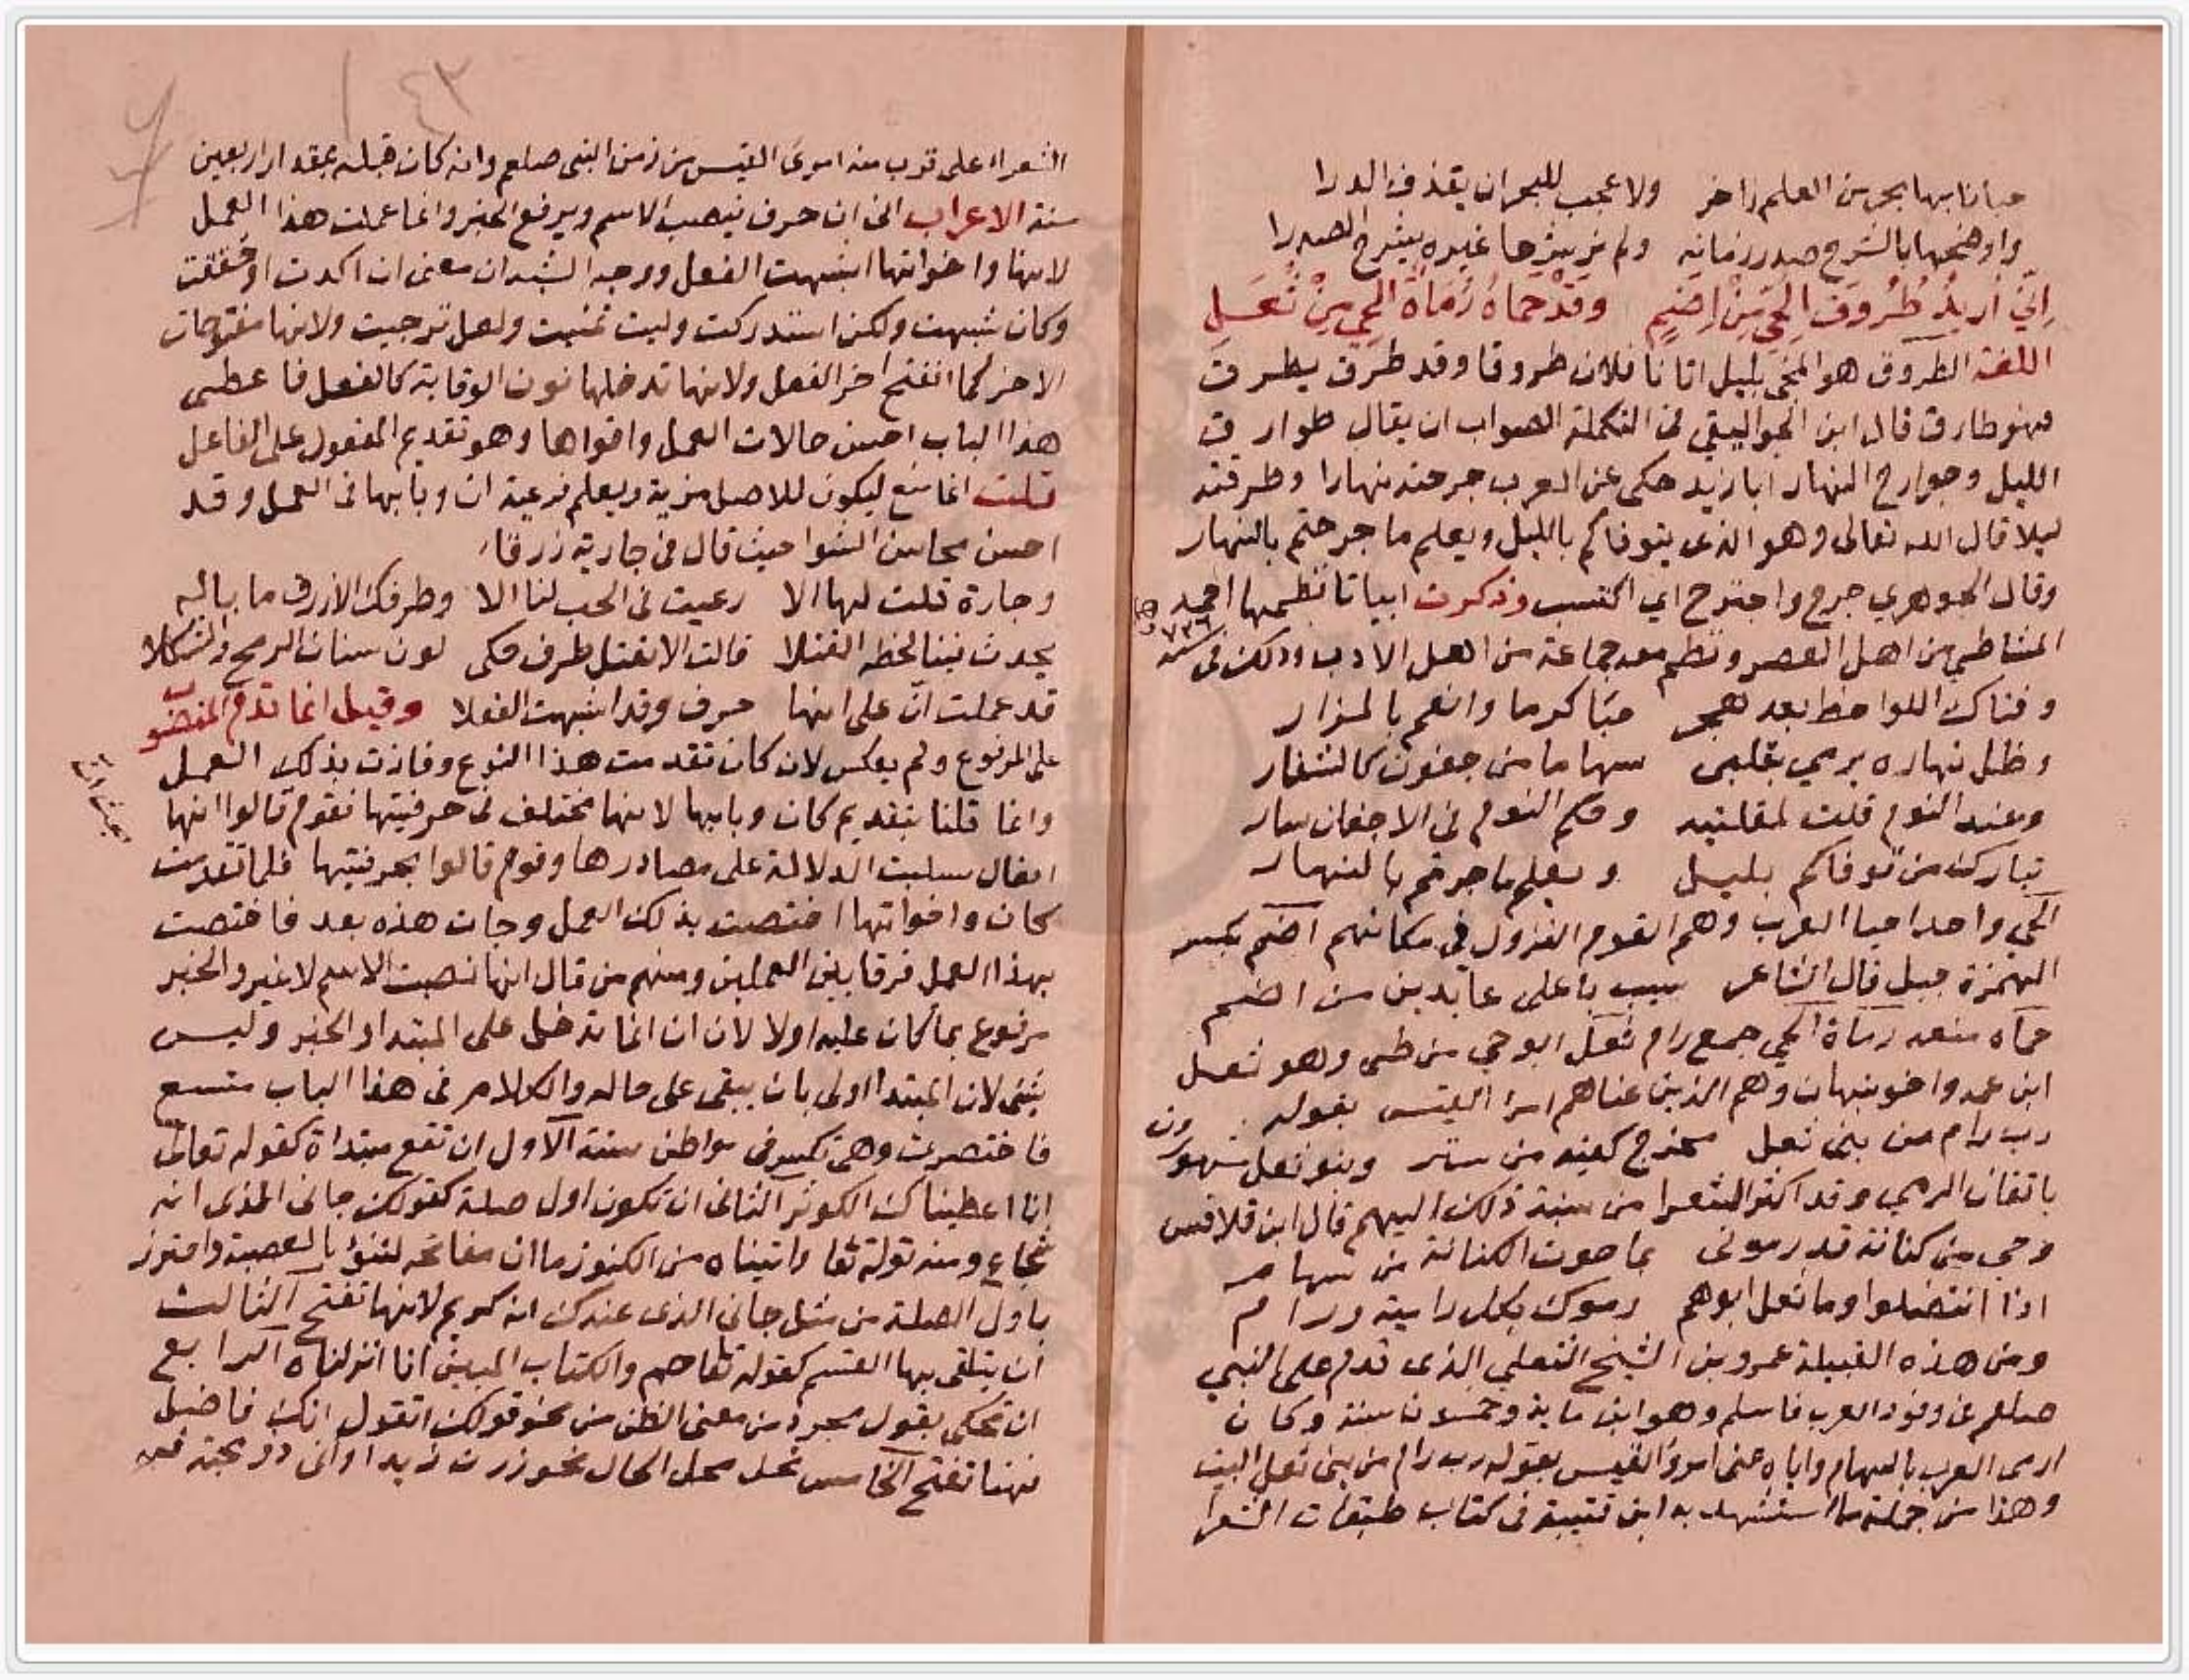 حبانا بها بحر من العلم زاخر ولا عجب للبحر ان يقذف الدرا
واوضحها بالشرح صدر زمانه ولم نر يشرحها غيره يشرح الصدرا
اني اريد طروق الحي من اضم وقد حماه رماة الحي من ثعل
اللغة الطروق هو المجي بليل اتانا فلان طروقا وقد طرق يطرق
فهو طارق قال ابن الجواليقي في التكملة الصواب ان يقال طوارق
الليل وجوارح النهار ابا زيد حكى عن العرب جرحته نهارا وطرقته
ليلا قال الله تعالى وهو الذي يتوفاكم بالليل ويعلم ما جرحتم بالنهار
وقال الجوهري جرح واجترح اي اكتسب وذكرت ابياتا نظمها احمد
المشاطي من اهل العصر ونظم معه جماعة من اهل الادب وذلك في سنة ٧٢٦
وفتاك اللواحظ بعد هجر حبا كرما وانعم بالمزار
وظل نهاره يرمي بقلبي سهاما من جفون كالشفار
وعند النوم قلت لمقلتيه وحكم النوم في الاجفان سار
تبارك من توفاكم بليل ويعلم ما جرحتم بالنهار
الحي واحد احيا العرب وهم القوم النزول في مكانهم اضم بكسر
الهمزة جبل قال الشاعر باعلى عابدين من اضم
حماه منعه رماة الحي جمع رام ثعل ابو حي من طي وهو ثعل
ابن عمرو اخو نبهان وهم الذين عناهم امرا القيس بقوله
رب رام من بني ثعل مخرج كفيه من ستر وبنو ثعل مشهورون
باتقان الرمي وقد اكثر الشعرا من نسبة ذلك اليهم قال ابن قلاقس
وحي من كنانة قد رموني بما حوت الكنانة من سهام
اذا انتضلوا وما ثعل ابوهم رموك بكل رامية ورام
ومن هذه القبيلة عمرو بن الشيخ الثعلي الذي قدم على النبي
صلعم في وفود العرب فاسلم وهو ابن ماية وخمسون سنة وكان
ارمى العرب بالسهام واياه عنى امرؤ القيس بقوله رب رام من بني ثعل البيت
وهذا من جملة ما استشهد به ابن قتيبة في كتاب طبقات الشعرا
١٤٣
الشعراء على قرب منه امرئ القيس من زمن النبي صلعم وانه كان قبله بمقدار اربعين
سنة الاعراب اني ان حرف ينصب الاسم ويرفع الخبر وانما عملت هذا العمل
لانها واخواتها اشبهت الفعل ووجه الشبه ان معنى ان اكدت او حققت
وكان شبهت ولكن استدركت وليت تمنيت ولعل ترجيت ولانها مفتوحات
الاخر كما انفتح اخر الفعل ولانها تدخلها نون الوقاية كالفعل فاعطي
هذا الباب احسن حالات العمل واقواها وهو تقديم المفعول على الفاعل
قلت انما منع ليكون للاصل مزية ويعلم فرعية ان وبابها في العمل وقد
احسن محاسن الشوا حيث قال في جارية زرقاء
وجارة قلت لها الا رعيت في الحب لنا الا وطرفك الازرق ما باله
يحدث فينا لحظه القتلا قالت الا نقتل طرف حكى لون سنان الرمح والشكلا
قد عملت ان على انها حرف وقد اشبهت الفعلا وقيل انما قدم المنصوب
على المرفوع ولم يعكس لان كان تقدمت هذا النوع وفازت بذلك العمل
وانما قلنا بتقديم كان وبابها لانها مختلف في حرفيتها فقوم قالوا انها
افعال سلبت الدلالة على مصادرها وقوم قالوا بحرفيتها فلما تقدمت
كان واخواتها اختصت بذلك العمل وجات هذه بعد فاختصت
بهذا العمل فرقا بين العملين ومنهم من قال انها نصبت الاسم لا غير والخبر
مرفوع بما كان عليه اولا لان ان انما تدخل على المبتدا والخبر وليس
بشي لان المبتدا اولى بان يبقى على حاله والكلام في هذا الباب متسع
فاختصرت وهي تكسر في مواطن ستة الاول ان تقع مبتداة كقوله تعالى
انا اعطيناك الكوثر الثاني ان تكون اول صلة كقولك جاني الذي انه
شجاع ومنه قوله تعا واتيناه من الكنوز ما ان مفاتحه لتنوؤ بالعصبة واحترز
باول الصلة من مثل جاني الذي عندك انه كريم لانها تفتح الثالث
ان يتلقى بها القسم كقوله تعا حم والكتاب المبين انا انزلناه الرابع
ان تحكى بقول مجرد من معنى الظن من نحو قولك اتقول انك فاضل
فهنا تفتح الخامس تحل محل الحال نحو زرت زيدا واني ذو بجنة فيه